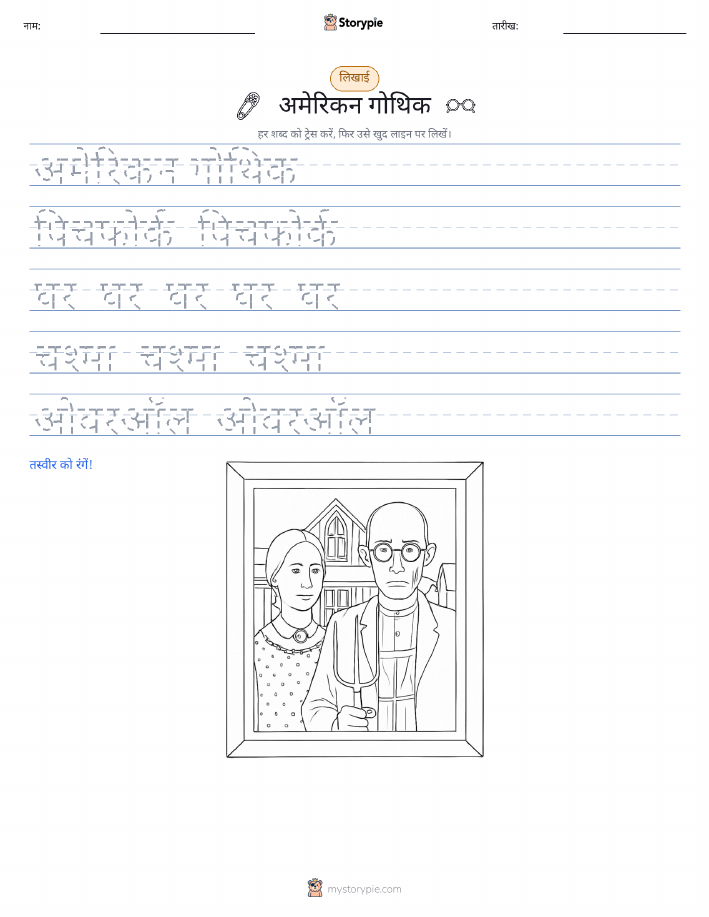 नाम:
Storypie
तारीख:
लिखाई
अमेरिकन गोथिक
हर शब्द को ट्रेस करें, फिर उसे खुद लाइन पर लिखें।
अमेरिकन गोथिक
पिचफोर्क पिचफोर्क
घर घर घर घर घर
चश्मा चश्मा चश्मा
ओवरऑल ओवरऑल
तस्वीर को रंगें!
mystorypie.com